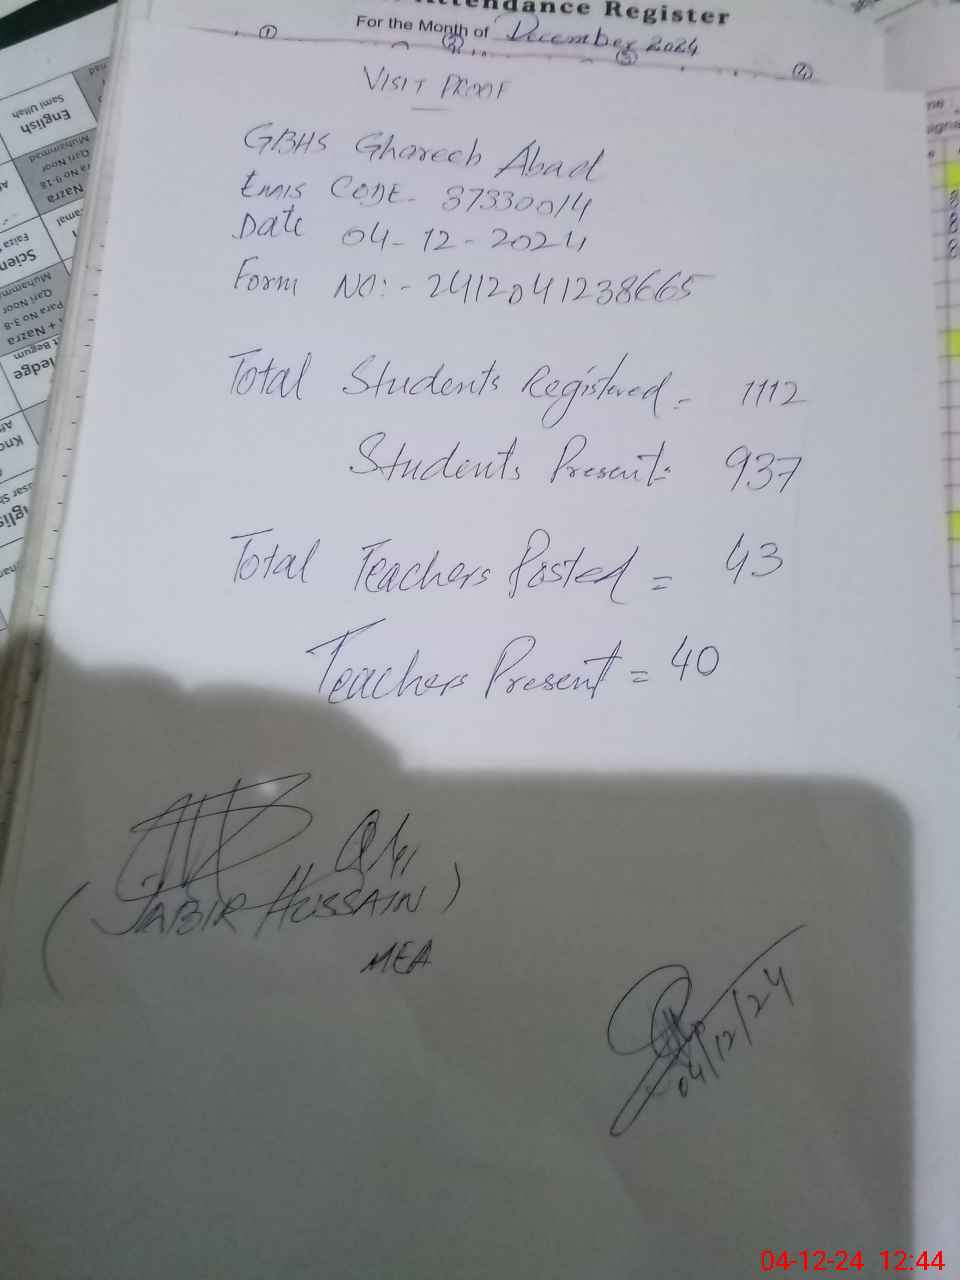 Attendance Register
For the Month of December 2024
1
2
3
4
VISIT PROOF
GBHS Ghareeb Abad
EMIS CODE- 37330014
Date 04-12-2024
Form NO:- 2412041238665
Total Students Registered = 1112
Students Present = 937
Total Teachers Posted = 43
Teachers Present = 40
(JABIR HUSSAIN)
MEA
04/12/24
English
Sami Ullah
Muhammad
Qari Noor
Para No 9-18
Nazra
Qari Noor
Para No 3-8
+ Nazra
04-12-24 12:44